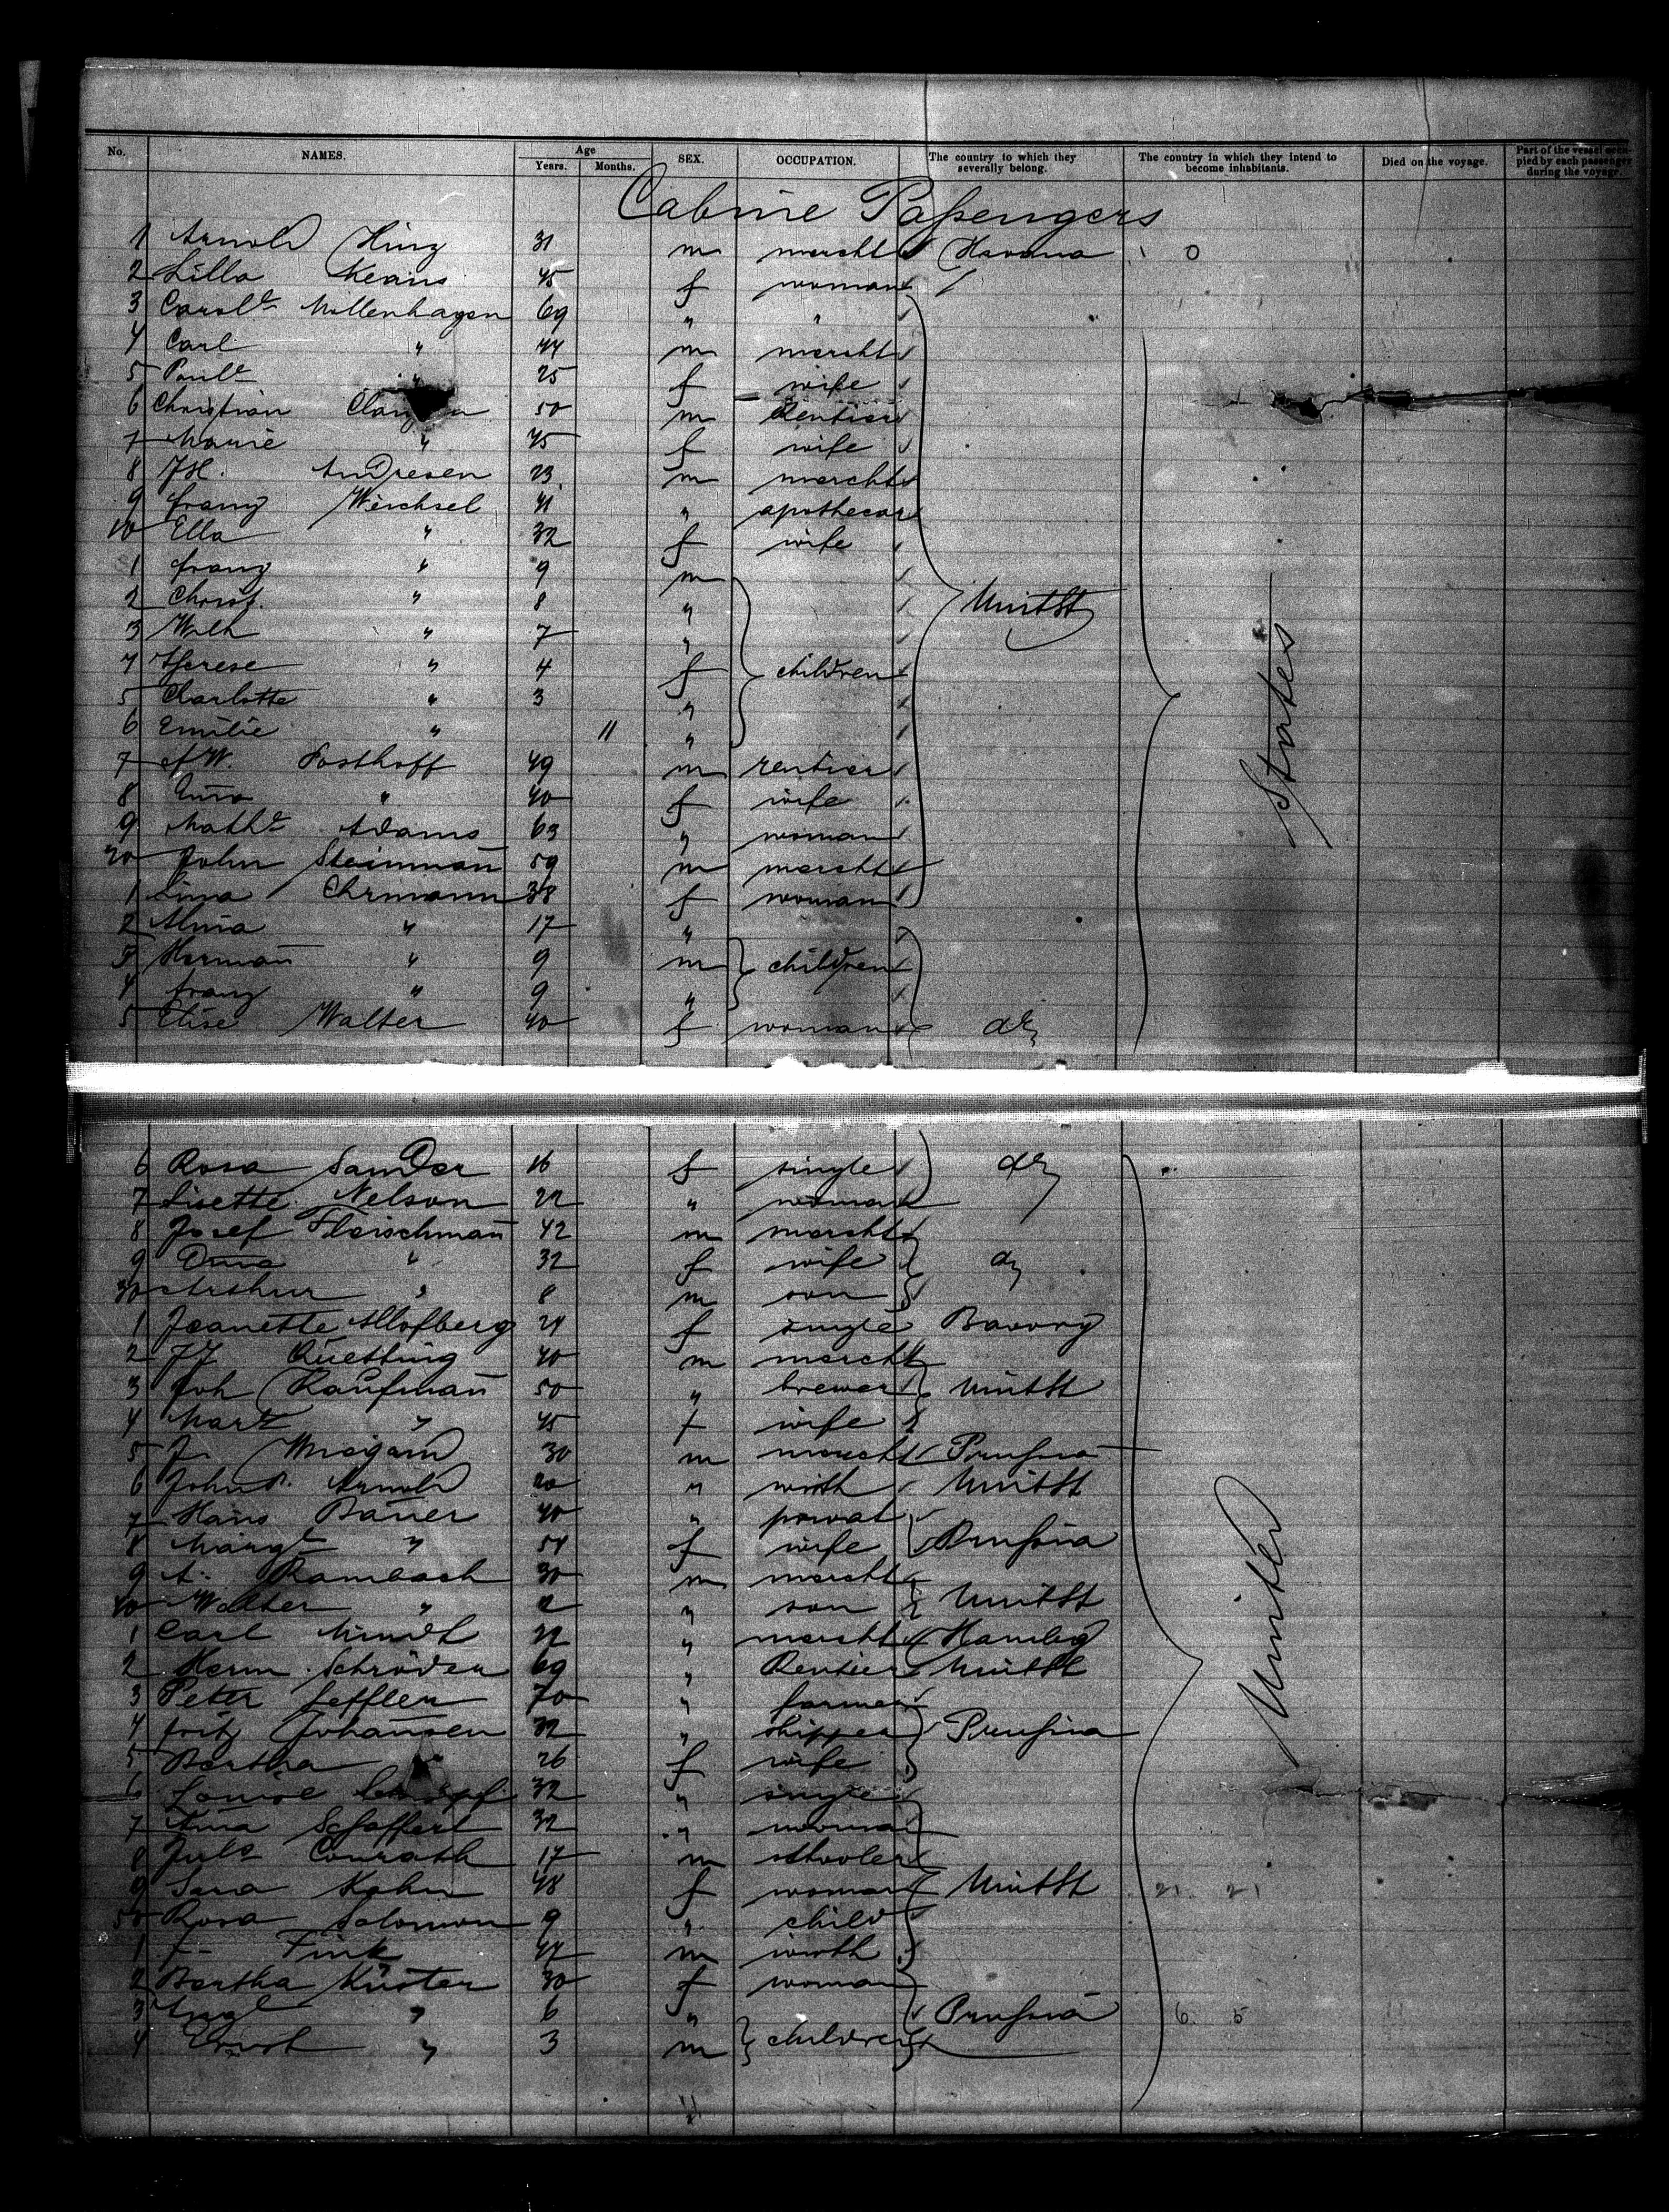 No. NAMES. Age Years. Months. SEX. OCCUPATION. The country to which they severally belong. The country in which they intend to become inhabitants. Died on the voyage. Part of the vessel occupied by each passenger during the voyage.
Cabine Passengers
1 Arnold m mercht Havana 0
2 45 f woman
3 Carole Mollenhagen 69 " "
4 Carl " 44 m mercht
5 Paule " 25 f wife
6 Christian 50 m Rentier
7 Marie " 45 f wife
8 JH. Andresen 23 m mercht
9 Franz Weichsel 41 " apothecar
10 Ella " 32 f wife
1 Franz " 9 m
2 Christ. " 8 " Unit St
3 Wilh " 7 "
4 Therese " 4 f children
5 Charlotte " 3 "
6 Emilie " 11 "
7 Posthoff 49 m rentier
8 " 40 f wife
9 Mathe Adams 63 " woman
20 John Steinman̄ 59 m mercht States
1 Lina Ehrmann 38 f woman
2 Alma " 17 "
3 Herman̄ " 9 m children
4 Franz " 9 "
5 Elise Walter 40 f woman do
6 Rosa Sander 16 f single do
7 Lisette Nelson 22 " woman
8 Josef Fleischman̄ 42 m mercht
9 " 32 f wife do
30 Arthur " 8 m son
1 Jeanette 24 f single
2 JJ Ruetting 40 m mercht
3 Joh Kaufman̄ 50 " brewer Unit St
4 " 45 f wife
5 30 m mercht Prussia
6 John Arnold 20 " Unit St
7 Hans Bauer 40 " privat
8 Marge " 54 f wife Prussia
9 A. Rambach 30 m mercht
40 Walther " " son Unit St
1 Carl 22 " mercht Hambg
2 Herm. Schröder 69 " Rentier Unit St United
3 Peter Lefflen 70 " farmer
4 Fritz Johansen 32 " skipper Prussia
5 Bertha " 26 f wife
6 32 " single
7 32 " woman
8 Conrath 17 m
9 Kohn 48 f woman Unit St 21 21
50 Rosa Solomon 9 " child
1 Fink 44 m
2 Bertha Küster 30 f woman
3 " 6 " Prussia 6 5
4 Ernst " 3 m children